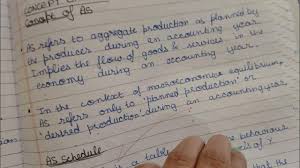 CONCEPT
Concept of AS
• AS refers to aggregate production as planned by
the producers during an accounting year.
Implies the flow of goods & services in the
economy during an accounting year.
• In the context of macroeconomic equilibrium,
AS refers only to 'planned production' or
'desired production' during an accounting year
AS Schedule
is a table behaviour
of